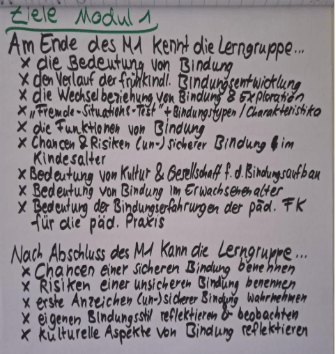 Ziele Modul 1
Am Ende des M1 kennt die Lerngruppe...
x die Bedeutung von Bindung
x den Verlauf der frühkindl. Bindungsentwicklung
x die Wechselbeziehung von Bindung & Exploration
x „Fremde-Situations-Test" + Bindungstypen / Charakteristika
x die Funktionen von Bindung
x Chancen & Risiken (un-) sicherer Bindung im
Kindesalter
x Bedeutung von Kultur & Gesellschaft f. d. Bindungsaufbau
x Bedeutung von Bindung im Erwachsenenalter
x Bedeutung der Bindungserfahrungen der päd. FK
für die päd. Praxis
Nach Abschluss des M1 kann die Lerngruppe...
x Chancen einer sicheren Bindung benennen
x Risiken einer unsicheren Bindung benennen
x erste Anzeichen (un-) sicherer Bindung wahrnehmen
x eigenen Bindungsstil reflektieren & beobachten
x kulturelle Aspekte von Bindung reflektieren